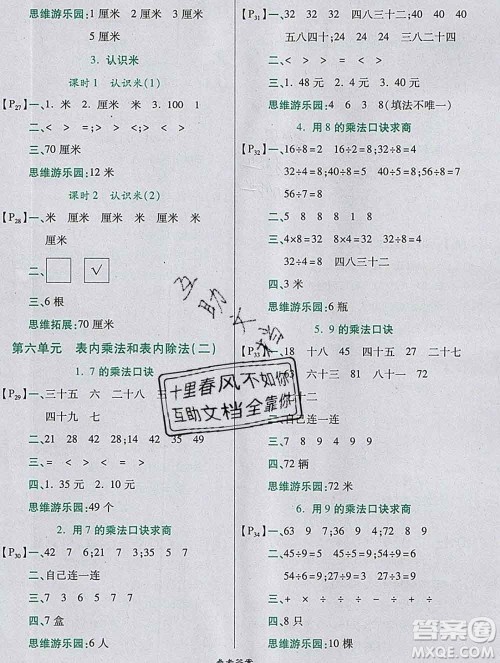 思维游乐园:1 厘米　3 厘米
5 厘米
3. 认识米
课时1　认识米(1)
【P27】一、1. 米　2. 米　3. 100　1
二、<　>　<　<　>　>
三、70 厘米
思维游乐园:12 米
课时2　认识米(2)
【P28】一、米　米　厘米　厘米　米　米
厘米
二、□　☑
三、6 根
思维拓展:70 厘米
第六单元　表内乘法和表内除法(二)
1. 7 的乘法口诀
【P29】一、三十五　六
四十九　七
二、21　28　42　28　35　49
三、<　=　<　<
四、1. 35 元　2. 10 元
思维游乐园:49 个
2. 用 7 的乘法口诀求商
【P30】一、42　7　6;21　7　3
二、自己连一连
三、<　<　=　>
四、7 盒
思维游乐园:6 人
一、32　32　四 八 三十二;40　40
五八四十;
二、=　<　>　<　>
三、1. 48 元　2. 24 元　3. 40 元
思维游乐园:4　6　3　8(填法不唯一)
4. 用 8 的乘法口诀求商
【P32】一、16÷8=2　16÷2=8
32÷8=4　32÷4=8
56÷8=7　40÷8=5
56÷7=8
二、5　8　8　8　8　1
三、4×8=32　8×4=32　32÷4=8
32÷8=4　四八三十二
四、3 米
思维游乐园:6 瓶
5. 9 的乘法口诀
【P33】一、18　十八　45　四十五　27
63　六十三　81　八十一
二、自己连一连
三、<　<　=　=　>　=
四、72 辆
思维游乐园:72 米
6. 用 9 的乘法口诀求商
【P34】一、63　9　7;32　8　9
二、45÷9=5　45÷5=9
54÷9=6　54÷6=9
27÷9=3　27÷3=9
三、+　-　×　÷　+　÷
四、8 只
思维游乐园:10 棵
十里春风不如你
互助文档全靠你
答案圈
MXQE.COM